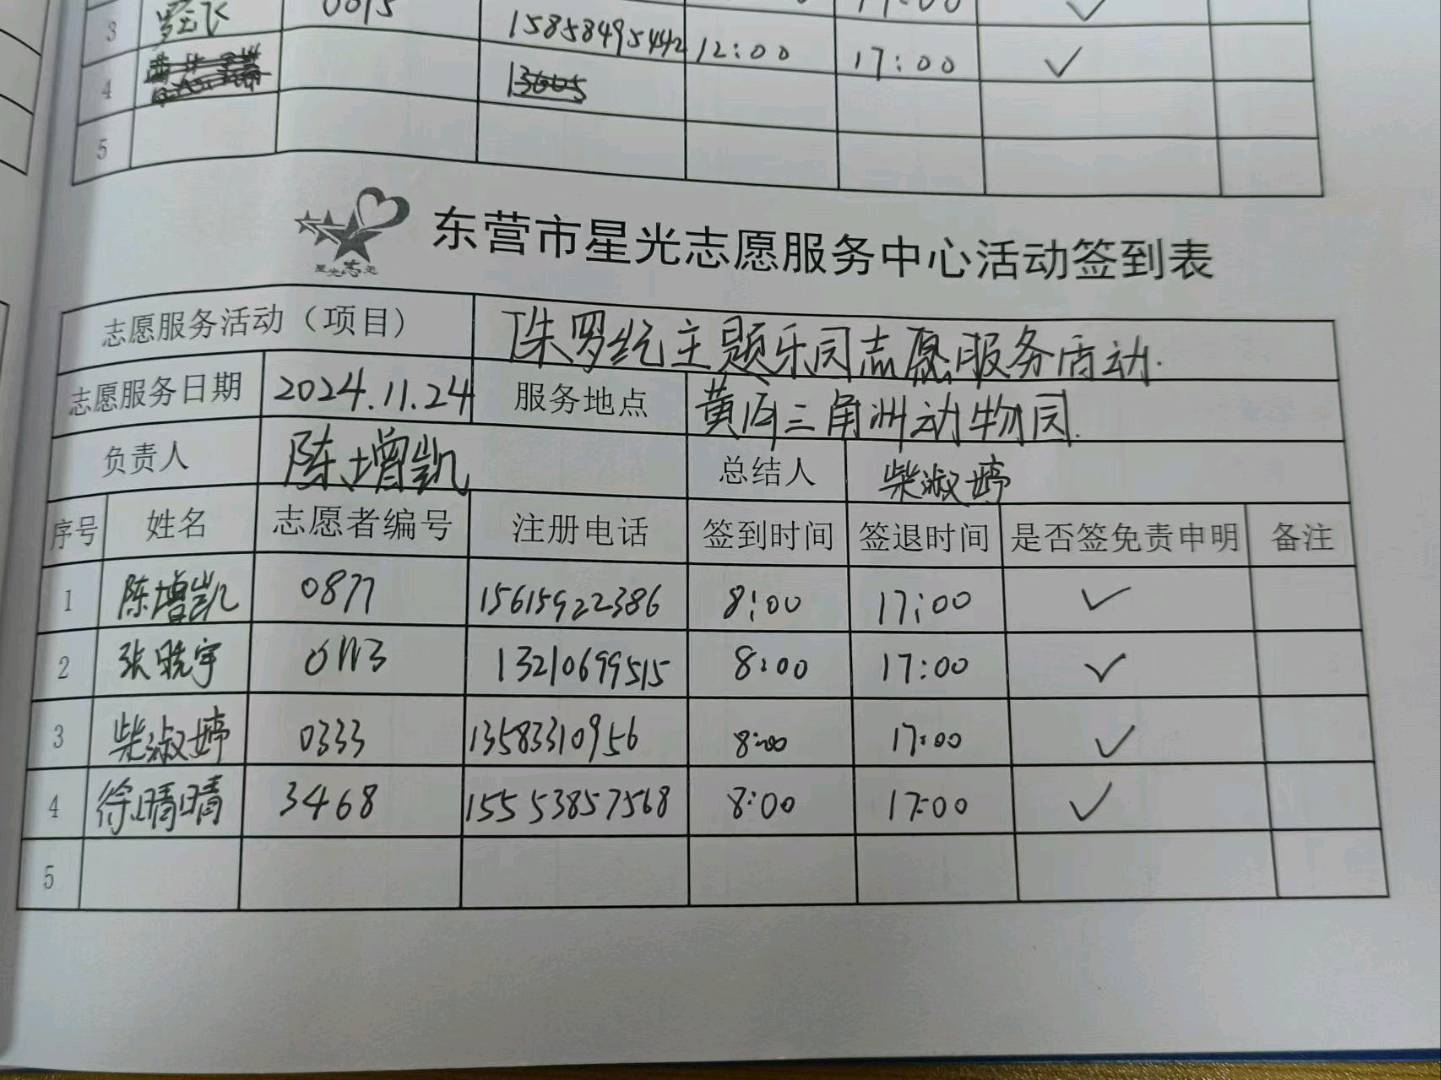 3 罗云飞 0015 15858495442 12:00 17:00 ✓
4
5
星光志愿
东营市星光志愿服务中心活动签到表
志愿服务活动（项目） 侏罗纪主题乐园志愿服务活动.
志愿服务日期 2024.11.24 服务地点 黄河三角洲动物园.
负责人 陈增凯 总结人 柴淑婷
序号 姓名 志愿者编号 注册电话 签到时间 签退时间 是否签免责申明 备注
1 陈增凯 0877 15615922386 8:00 17:00 ✓
2 张晓宇 0113 13210699515 8:00 17:00 ✓
3 柴淑婷 0333 13583310956 8:00 17:00 ✓
4 徐晴晴 3468 15553857568 8:00 17:00 ✓
5